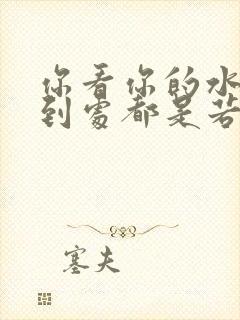 你看你的水
到处都是若
塞夫